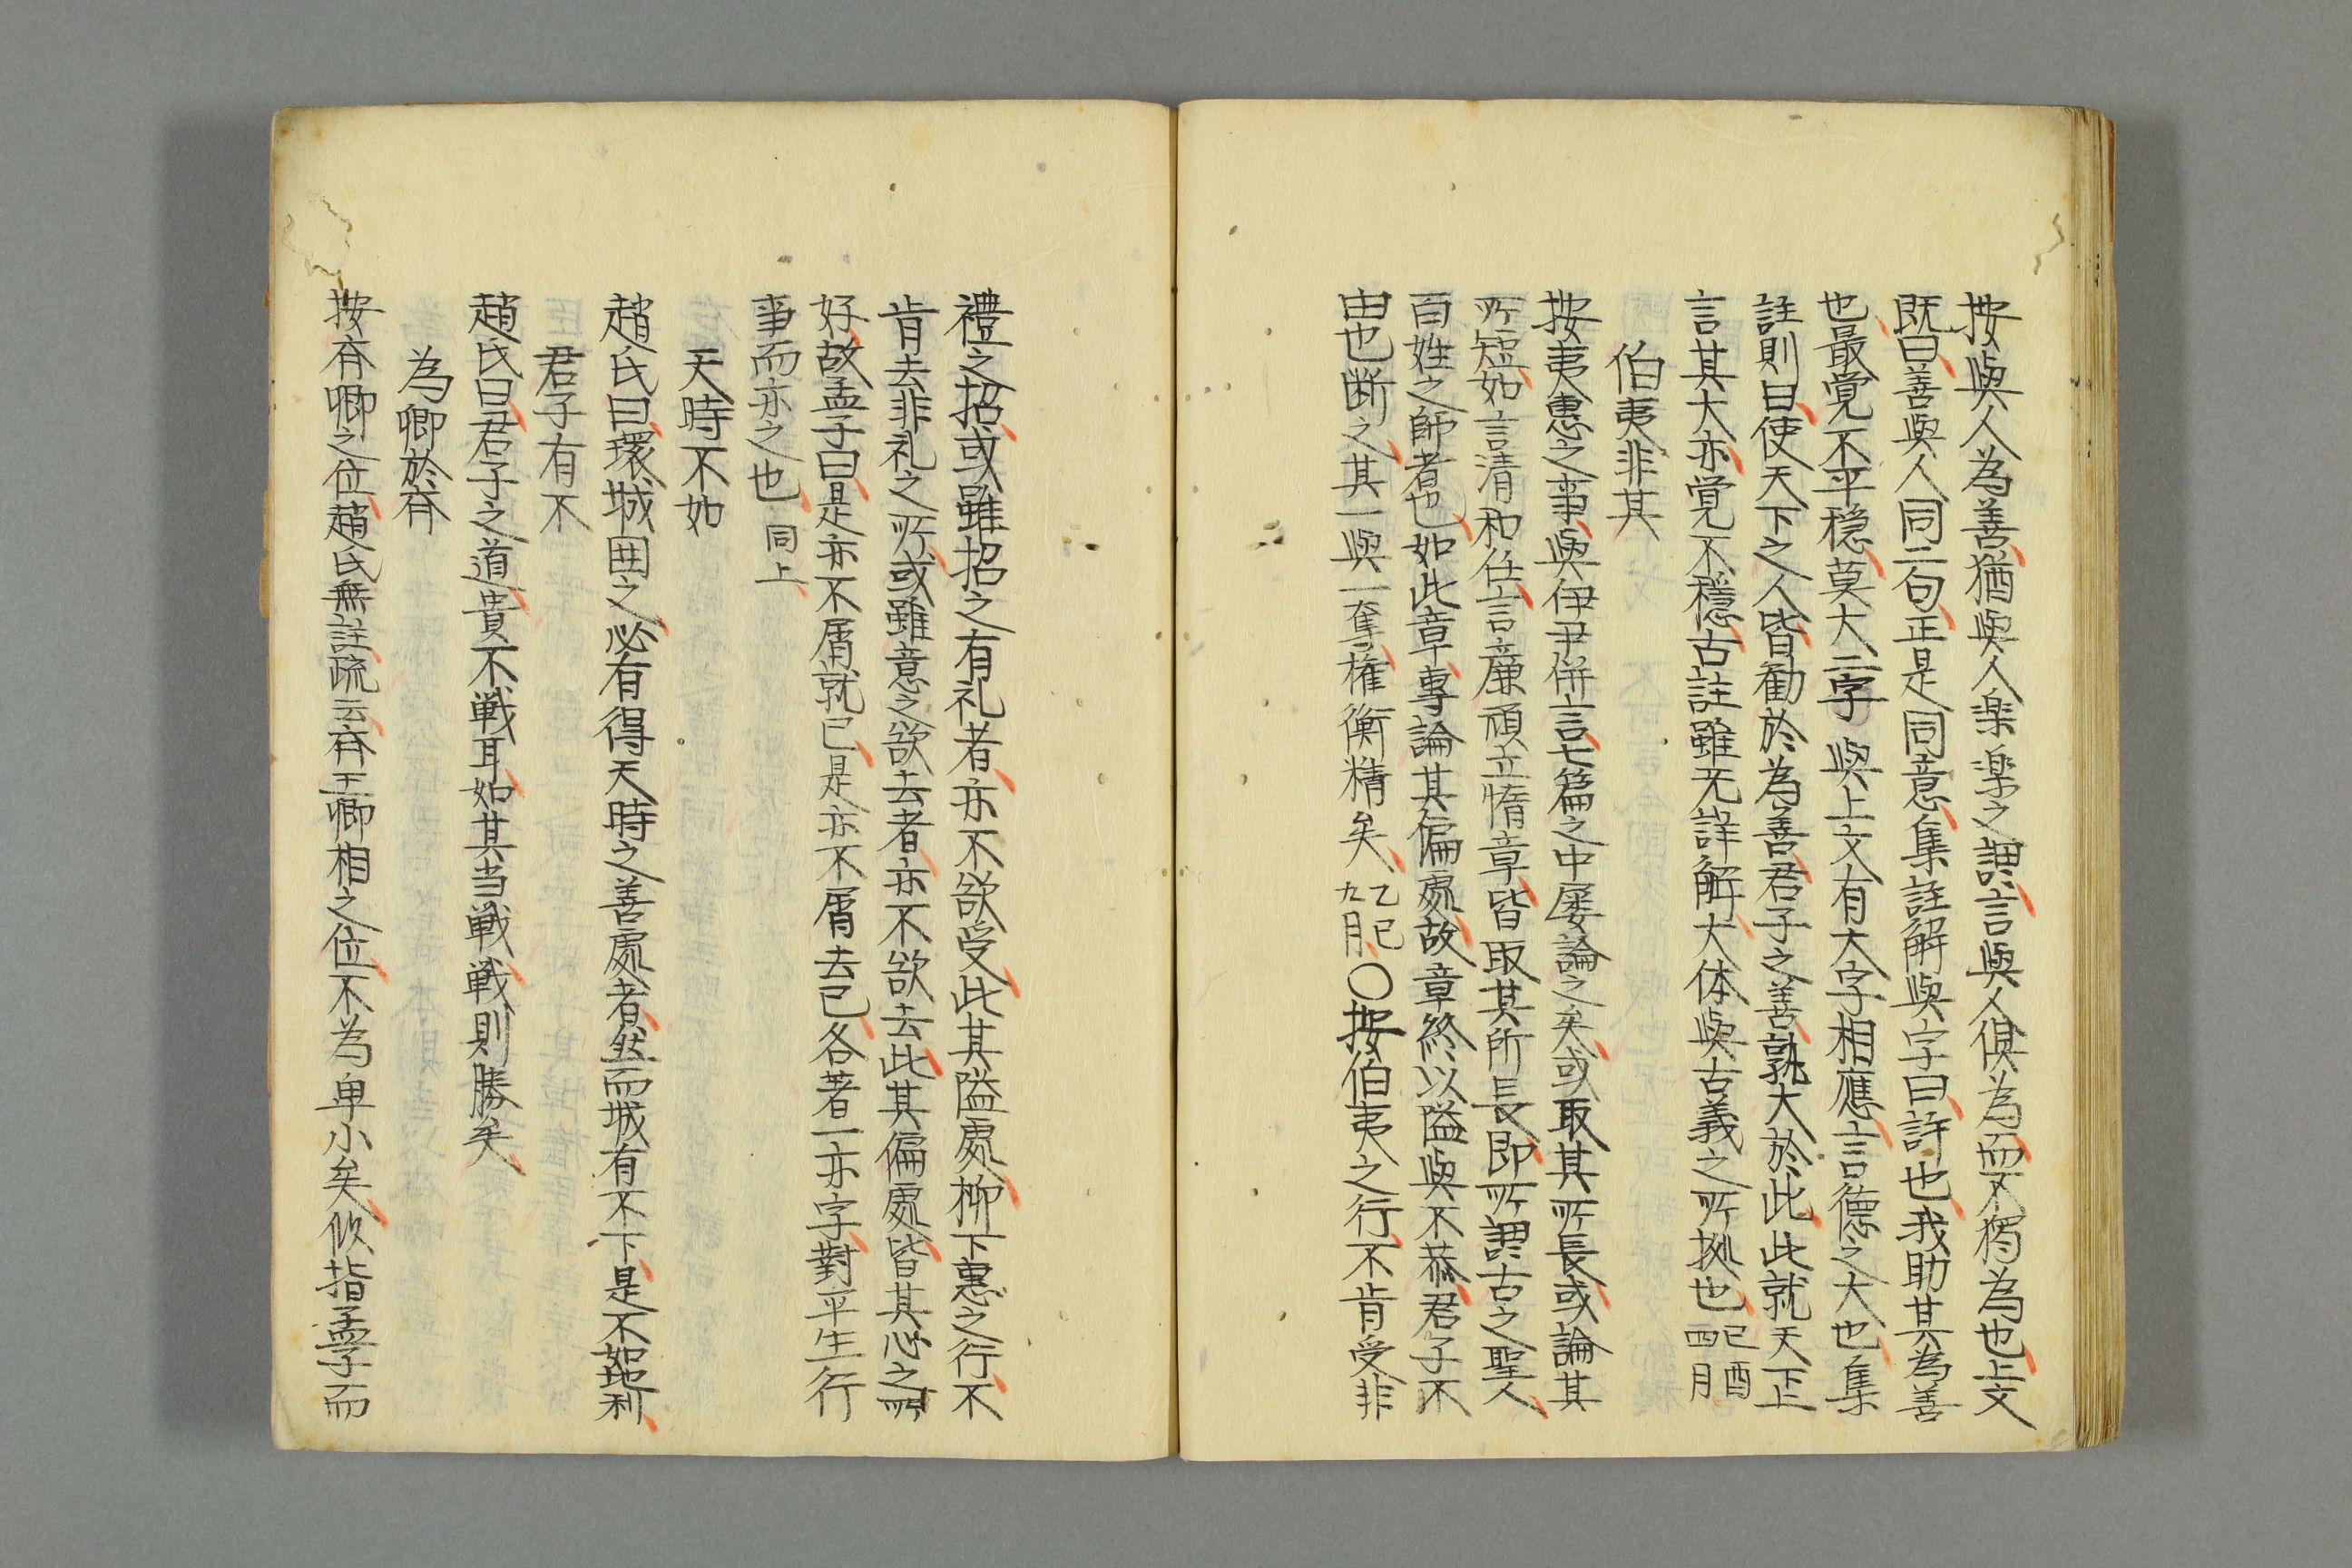 按與人為善猶與人楽楽之謂言與人倶為而不獨為也上文
既曰善與人同二句正是同意集註解與字曰許也我助其為善
也最覚不平穏莫大二字與上文有大字相應言德之大也集
註則曰使天下之人皆勸於為善君子之善孰大於此此就天下上
言其大亦覚不穩古註雖无詳解大体與古義之所拠也己酉四月
伯夷非其
按夷惠之事與伊尹併言七篇之中屡論之矣或取其所長或論其
所短如言清和任言廉頑立惰章皆取其所長即所謂古之聖人
百姓之師者也如此章專論其偏處故章終以隘與不恭君子不
由也断之其一與一奪權衡精矣乙巳九月〇按伯夷之行不肯受非
禮之招或雖招之有礼者亦不欲受此其隘處柳下惠之行不
肯去非礼之所或雖意之欲去者亦不欲去此其偏處皆其心之所
好故孟子曰是亦不屑就已是亦不屑去已各著一亦字對平生行
事而亦之也同上
天時不如
趙氏曰環城囲之必有得天時之善處者然而城有不下是不如地利
君子有不
趙氏曰君子之道貴不戦耳如其当戦戦則勝矣
為卿於斉
按斉卿之位趙氏無註疏云斉王卿相之位不為卑小矣攸指孟子而